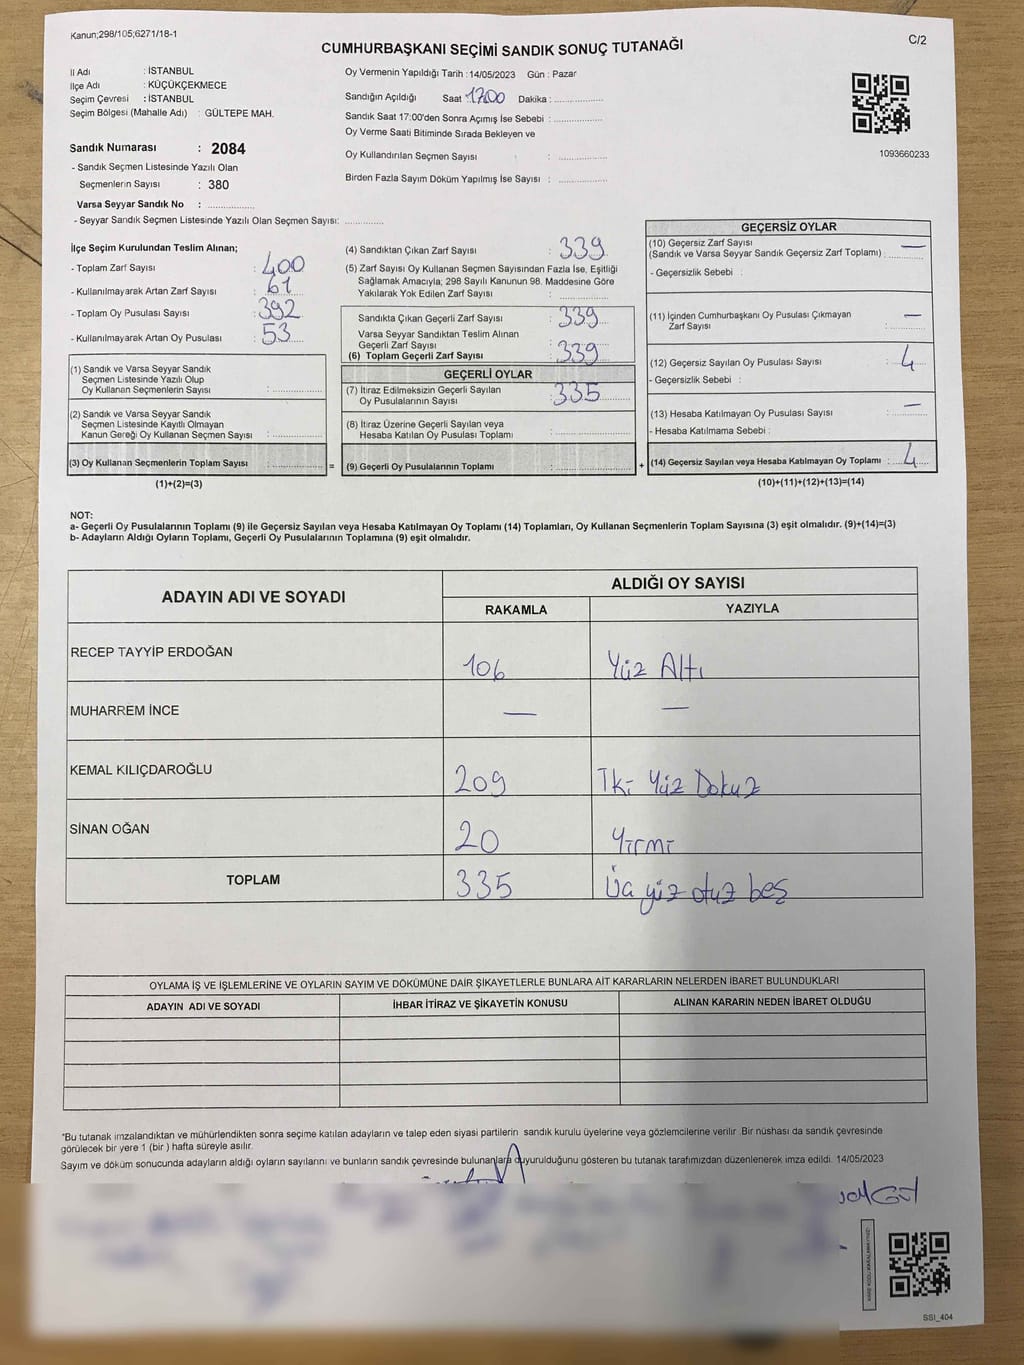 Kanun;298/105;6271/18-1
C/2
CUMHURBAŞKANI SEÇİMİ SANDIK SONUÇ TUTANAĞI
İl Adı : İSTANBUL
İlçe Adı : KÜÇÜKÇEKMECE
Seçim Çevresi : İSTANBUL
Seçim Bölgesi (Mahalle Adı) : GÜLTEPE MAH.
Sandık Numarası : 2084
- Sandık Seçmen Listesinde Yazılı Olan
Seçmenlerin Sayısı : 380
Varsa Seyyar Sandık No : ................
- Seyyar Sandık Seçmen Listesinde Yazılı Olan Seçmen Sayısı: .............
Oy Vermenin Yapıldığı Tarih :14/05/2023 Gün : Pazar
Sandığın Açıldığı Saat 17.00 Dakika : ................
Sandık Saat 17:00'den Sonra Açımış İse Sebebi : ................
Oy Verme Saati Bitiminde Sırada Bekleyen ve
Oy Kullandırılan Seçmen Sayısı : ................
Birden Fazla Sayım Döküm Yapılmış İse Sayısı : ................
1093660233
İlçe Seçim Kurulundan Teslim Alınan;
- Toplam Zarf Sayısı : 400
- Kullanılmayarak Artan Zarf Sayısı : 61
- Toplam Oy Pusulası Sayısı : 392
- Kullanılmayarak Artan Oy Pusulası : 53
(1) Sandık ve Varsa Seyyar Sandık
Seçmen Listesinde Yazılı Olup
Oy Kullanan Seçmenlerin Sayısı : ................
(2) Sandık ve Varsa Seyyar Sandık
Seçmen Listesinde Kayıtlı Olmayan
Kanun Gereği Oy Kullanan Seçmen Sayısı : ................
(3) Oy Kullanan Seçmenlerin Toplam Sayısı : ................ =
(1)+(2)=(3)
(4) Sandıktan Çıkan Zarf Sayısı : 339
(5) Zarf Sayısı Oy Kullanan Seçmen Sayısından Fazla İse, Eşitliği
Sağlamak Amacıyla; 298 Sayılı Kanunun 98. Maddesine Göre
Yakılarak Yok Edilen Zarf Sayısı : ................
Sandıkta Çıkan Geçerli Zarf Sayısı : 339
Varsa Seyyar Sandıktan Teslim Alınan
Geçerli Zarf Sayısı :
(6) Toplam Geçerli Zarf Sayısı 339
GEÇERLİ OYLAR
(7) İtiraz Edilmeksizin Geçerli Sayılan
Oy Pusulalarının Sayısı : 335
(8) İtiraz Üzerine Geçerli Sayılan veya
Hesaba Katılan Oy Pusulası Toplamı : ................
(9) Geçerli Oy Pusulalarının Toplamı : ................ +
GEÇERSİZ OYLAR
(10) Geçersiz Zarf Sayısı —
(Sandık ve Varsa Seyyar Sandık Geçersiz Zarf Toplamı) : ..........
- Geçersizlik Sebebi :
(11) İçinden Cumhurbaşkanı Oy Pusulası Çıkmayan —
Zarf Sayısı : ..........
(12) Geçersiz Sayılan Oy Pusulası Sayısı : 4
- Geçersizlik Sebebi :
(13) Hesaba Katılmayan Oy Pusulası Sayısı : —
- Hesaba Katılmama Sebebi :
(14) Geçersiz Sayılan veya Hesaba Katılmayan Oy Toplamı : 4
(10)+(11)+(12)+(13)=(14)
NOT:
a- Geçerli Oy Pusulalarının Toplamı (9) ile Geçersiz Sayılan veya Hesaba Katılmayan Oy Toplamı (14) Toplamları, Oy Kullanan Seçmenlerin Toplam Sayısına (3) eşit olmalıdır. (9)+(14)=(3)
b- Adayların Aldığı Oyların Toplamı, Geçerli Oy Pusulalarının Toplamına (9) eşit olmalıdır.
ADAYIN ADI VE SOYADI ALDIĞI OY SAYISI
RAKAMLA YAZIYLA
RECEP TAYYİP ERDOĞAN 106 Yüz Altı
MUHARREM İNCE — —
KEMAL KILIÇDAROĞLU 209 İki Yüz Dokuz
SİNAN OĞAN 20 Yirmi
TOPLAM 335 Üç yüz otuz beş
OYLAMA İŞ VE İŞLEMLERİNE VE OYLARIN SAYIM VE DÖKÜMÜNE DAİR ŞİKAYETLERLE BUNLARA AİT KARARLARIN NELERDEN İBARET BULUNDUKLARI
ADAYIN ADI VE SOYADI İHBAR İTİRAZ VE ŞİKAYETİN KONUSU ALINAN KARARIN NEDEN İBARET OLDUĞU
*Bu tutanak imzalandıktan ve mühürlendikten sonra seçime katılan adayların ve talep eden siyasi partilerin sandık kurulu üyelerine veya gözlemcilerine verilir. Bir nüshası da sandık çevresinde
görülecek bir yere 1 (bir) hafta süreyle asılır.
Sayım ve döküm sonucunda adayların aldığı oyların sayılarını ve bunların sandık çevresinde bulunanlara duyurulduğunu gösteren bu tutanak tarafımızdan düzenlenerek imza edildi. 14/05/2023
SSI_404